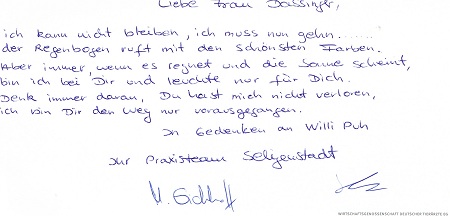 Liebe Frau Dassinger,
ich kann nicht bleiben, ich muss nun gehn........
der Regenbogen ruft mit den schönsten Farben.
Aber immer, wenn es regnet und die Sonne scheint,
bin ich bei Dir und leuchte nur für Dich.
Denk immer daran, Du hast mich nicht verloren,
ich bin Dir den Weg nur vorausgegangen.
In Gedenken an Willi Puh
Ihr Praxisteam Seligenstadt
WIRTSCHAFTSGENOSSENSCHAFT DEUTSCHER TIERÄRZTE EG